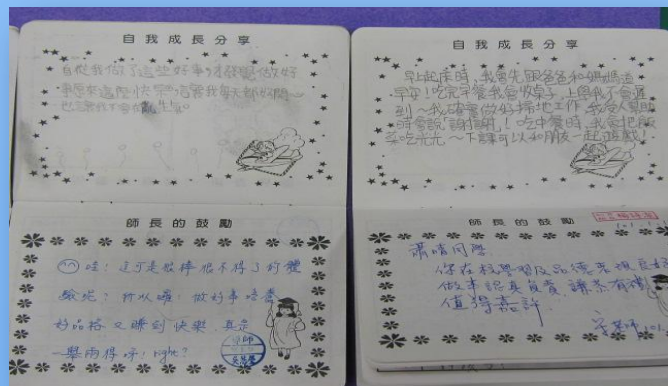 自我成長分享
自從我做了這些好事,才發學做好
事原來這麼快樂,
也讓我不會亂生氣。
師長的鼓勵
哇!這可是很棒很不得了的體
驗呢!所以囉!做好事培養
好品格又賺到快樂,真是
一舉兩得呀!right?
自我成長分享
早上起床時,我會先跟爸爸和媽媽道
早安!吃完早餐我會收桌子,上學我不會遲
到~我確實做好掃地工作,我受人幫助
時會說「謝謝」!吃中餐時,我會把飯
菜吃光光~下課可以和朋友一起遊戲!
師長的鼓勵
蕭晴同學:
你在校學習及品德表現良好
做事認真負責,謙恭有禮,
值得嘉許.